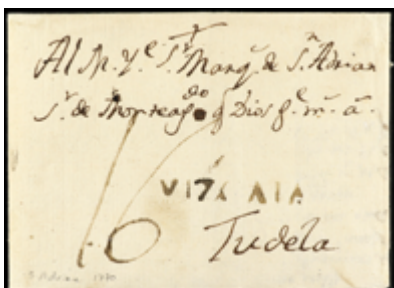 Al M. Y.e S.r Marq.s de S.n Adrian
S.r de Monteag.do q Dios g.e m.s a.s
VIZCAIA
Tudela